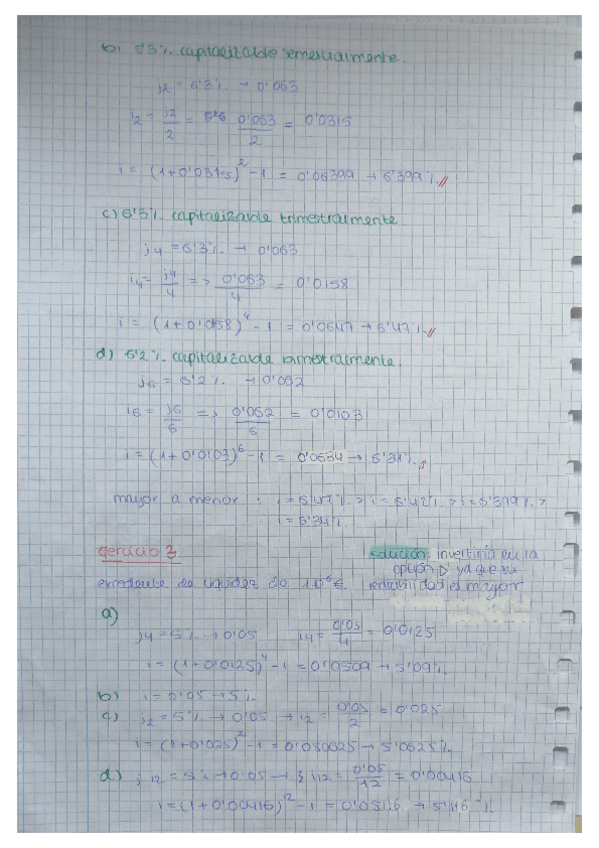 b) 6'3%. capitalizable semestralmente.
j2 = 6'3%. → 0'063
i2 = j2/2 = 0'063/2 = 0'0315
i = (1+0'0315)^2 - 1 = 0'06399 → 6'399%.//
c) 6'3%. capitalizable trimestralmente.
j4 = 6'3%. → 0'063
i4 = j4/4 => 0'063/4 = 0'0158
i = (1+0'0158)^4 - 1 = 0'0647 → 6'47%.//
d) 6'2%. capitalizable bimestralmente.
j6 = 6'2%. → 0'062
i6 = j6/6 => 0'062/6 = 0'0103
i = (1+0'0103)^6 - 1 = 0'0634 → 6'34%.//
mayor a menor : i = 6'47%. > i = 6'42%. > i = 6'399%. >
i = 6'34%.
ejercicio 3
solución: invertiría en la
opción D' ya que su
excedente de liquidez de € rentabilidad es mayor
a)
j4 = 5%. → 0'05 i4 = 0'05/4 = 0'0125
i = (1+0'0125)^4 - 1 = 0'0509 → 5'09%.
b) i = 0'05 → 5%.
c) j2 = 5%. → 0'05 → i2 = 0'05/2 = 0'025
i = (1+0'025)^2 - 1 = 0'050625 → 5'0625%.
d) j12 = 5%. → 0'05 → i12 = 0'05/12 = 0'00416
i = (1+0'00416)^12 - 1 = 0'05116 → 5'116%.